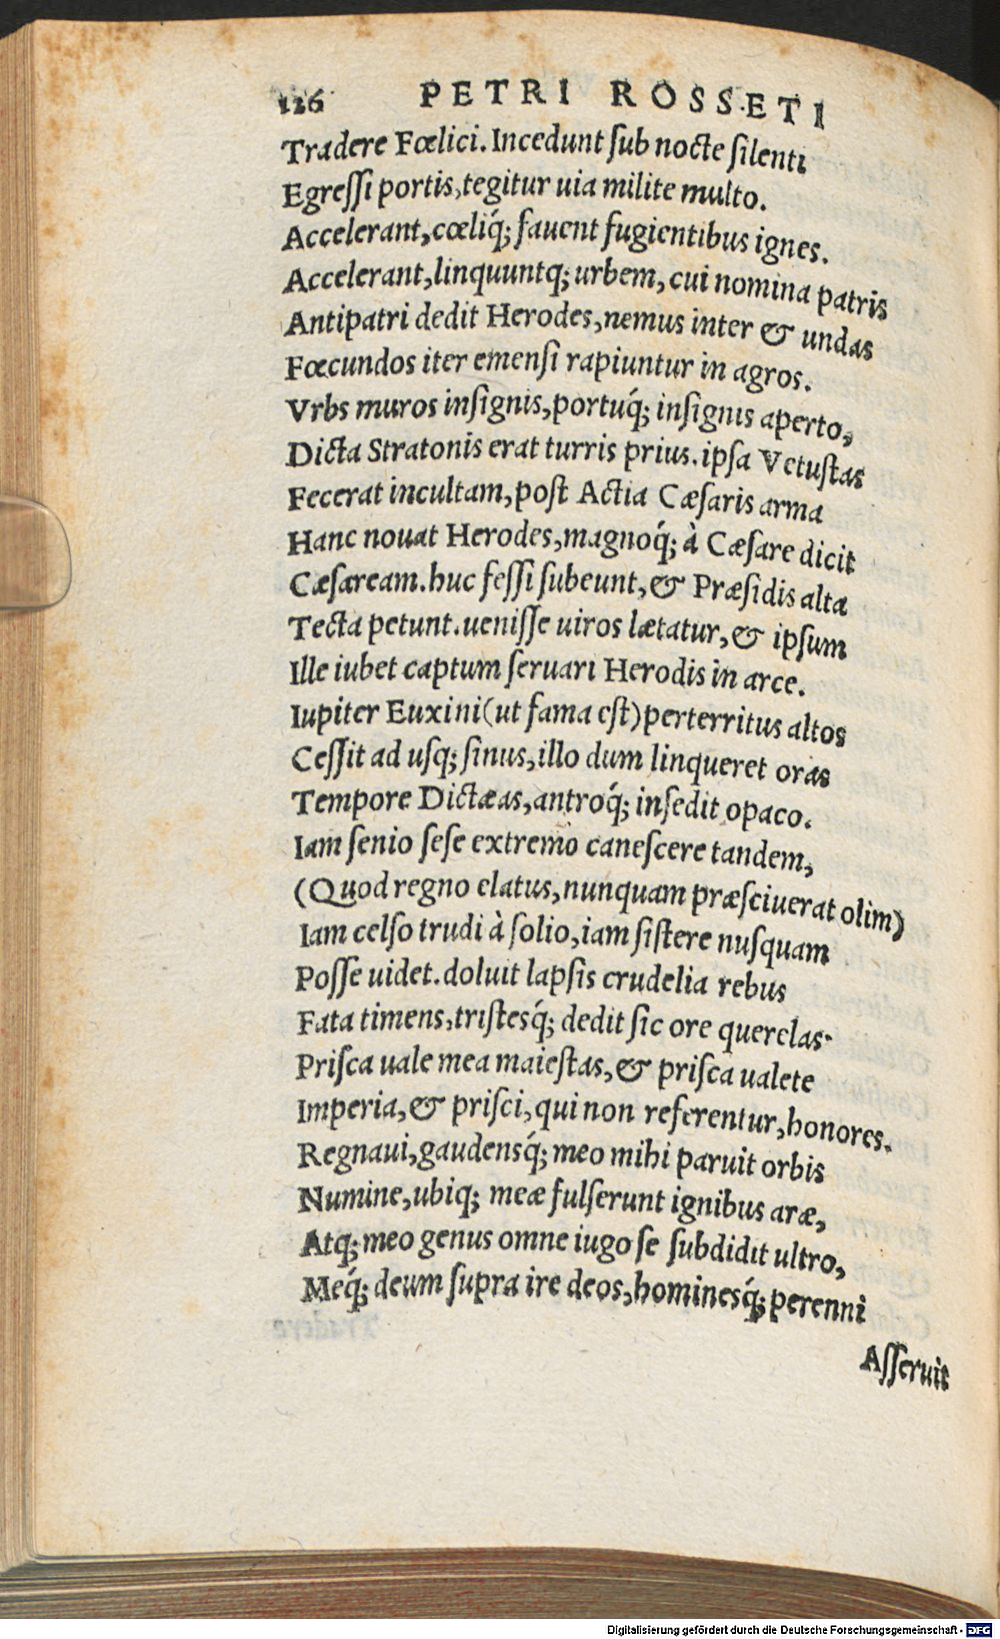 126 PETRI ROSSETI
Tradere Fœlici. Incedunt ſub nocte ſilenti
Egreſſi portis, tegitur uia milite multo.
Accelerant, cœliq́; fauent fugientibus ignes.
Accelerant, linquuntq; urbem, cui nomina patris
Antipatri dedit Herodes, nemus inter & undas
Fœcundos iter emenſi rapiuntur in agros.
Vrbs muros inſignis, portuq́; inſignis aperto,
Dicta Stratonis erat turris prius. ipſa Vetuſtas
Fecerat incultam, poſt Actia Cæſaris arma
Hanc nouat Herodes, magnoq́; à Cæſare dicit
Cæſaream. huc feſſi ſubeunt, & Præſidis alta
Tecta petunt. ueniſſe uiros lætatur, & ipſum
Ille iubet captum ſeruari Herodis in arce.
Iupiter Euxini (ut fama eſt) perterritus altos
Ceſſit ad uſq; ſinus, illo dum linqueret oras
Tempore Dictæas, antroq́; inſedit opaco.
Iam ſenio ſeſe extremo caneſcere tandem,
(Quod regno elatus, nunquam præſciuerat olim)
Iam celſo trudi à ſolio, iam ſiſtere nuſquam
Poſſe uidet. doluit lapſis crudelia rebus
Fata timens, triſtesq́; dedit ſic ore querelas.
Priſca uale mea maieſtas, & priſca ualete
Imperia, & priſci, qui non referentur, honores.
Regnaui, gaudensq́; meo mihi paruit orbis
Numine, ubiq; meæ fulſerunt ignibus aræ,
Atq; meo genus omne iugo ſe ſubdidit ultro,
Meq́; deum ſupra ire deos, hominesq́; perenni
Aſſeruit
Digitalisierung gefördert durch die Deutsche Forschungsgemeinschaft - DFG